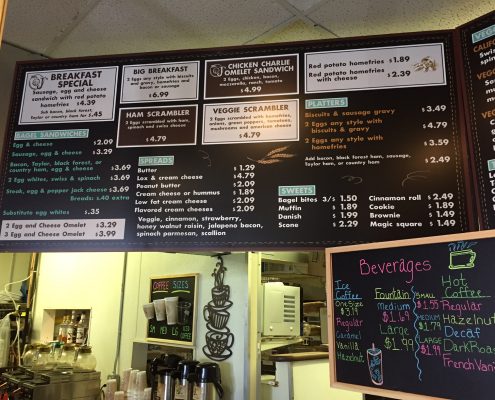 BREAKFAST
SPECIAL
Sausage, egg and cheese
sandwich with red potato
homefries $4.39
Sub bacon, black forest,
Taylor or country ham for $.45
BIG BREAKFAST
2 Eggs any style with biscuits
and gravy, homefries and
bacon or sausage
$6.99
CHICKEN CHARLIE
OMELET SANDWICH
2 Eggs, chicken, bacon,
mozzarella, ranch, tomato
$4.99
Red potato homefries $1.89
Red potato homefries $2.39
with cheese
HAM SCRAMBLER
2 Eggs scrambled with ham,
spinach and swiss cheese
$4.79
VEGGIE SCRAMBLER
2 Eggs scrambled with homefries,
onions, green peppers, tomatoes,
mushrooms and american cheese
$4.79
PLATTERS
Biscuits & sausage gravy $3.49
2 Eggs any style with $4.79
biscuits & gravy
2 Eggs any style with $3.59
homefries
Add bacon, black forest ham, sausage, $2.49
Taylor ham, or country ham
BAGEL SANDWICHES
Egg & cheese $2.09
Sausage, egg & cheese $3.29
Bacon, Taylor, black forest, or
country ham, egg & cheese $3.69
2 Egg whites, swiss & spinach $3.69
Steak, egg & pepper jack cheese $3.69
Breads: $.40 extra
Substitute egg whites $.35
2 Egg and Cheese Omelet $3.29
3 Egg and Cheese Omelet $3.99
SPREADS
Butter 1.29
Lox & cream cheese $4.79
Peanut butter $2.09
Cream cheese or hummus $1.89
Low fat cream cheese $2.09
Flavored cream cheeses $2.09
Veggie, cinnamon, strawberry,
honey walnut raisin, jalapeno bacon,
spinach parmesan, scallion
SWEETS
Bagel bites 3/$ 1.50
Muffin $1.89
Danish $1.99
Scone $2.29
Cinnamon roll $2.49
Cookie $1.89
Brownie $1.49
Magic square $1.49
COFFEE SIZES
SM MED LG
Beverages
Ice
Coffee
One Size
$3.19
Regular
Caramel
Vanilla
Hazelnut
Fountain
Medium
$1.69
Large
$1.99
SMALL
$1.55
MEDIUM
$1.79
LARGE
$1.99
Hot
Coffee
Regular
Hazelnut
Decaf
Dark Roast
French Van